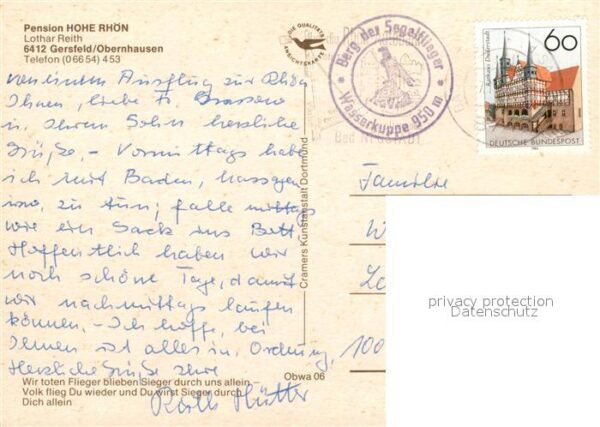 Pension HOHE RHÖN
Lothar Reith
6412 Gersfeld/Obernhausen
Telefon (0 66 54) 4 53
von einem Ausflug zur Rhön
Ihnen, liebe Fr.
u. Ihrem Sohn herzliche
Grüße. - Vormittags habe
ich mit Baden, massagen
usw. zu tun; falle mittags
wie ein Sack ins Bett.
Hoffentlich haben wir
noch schöne Tage, damit
wir nachmittags laufen
können. - Ich hoffe, bei
Ihnen ist alles in Ordnung.
Herzliche Grüße Ihre
Hütter
Wir toten Flieger blieben Sieger durch uns allein
Volk flieg Du wieder und Du wirst Sieger durch
Dich allein
Obwa 06
Cramers Kunstanstalt Dortmund
DIE QUALITÄTS
ANSICHTSKARTE
Berg der Segelflieger
Wasserkuppe 950 m
Bad NEUSTADT
60
Rathaus Duderstadt
DEUTSCHE BUNDESPOST
Familie
100
privacy protection
Datenschutz